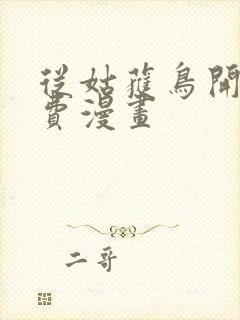 從姑獲鳥開
費漫畫
二哥